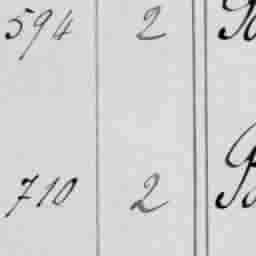 594 2
710 2